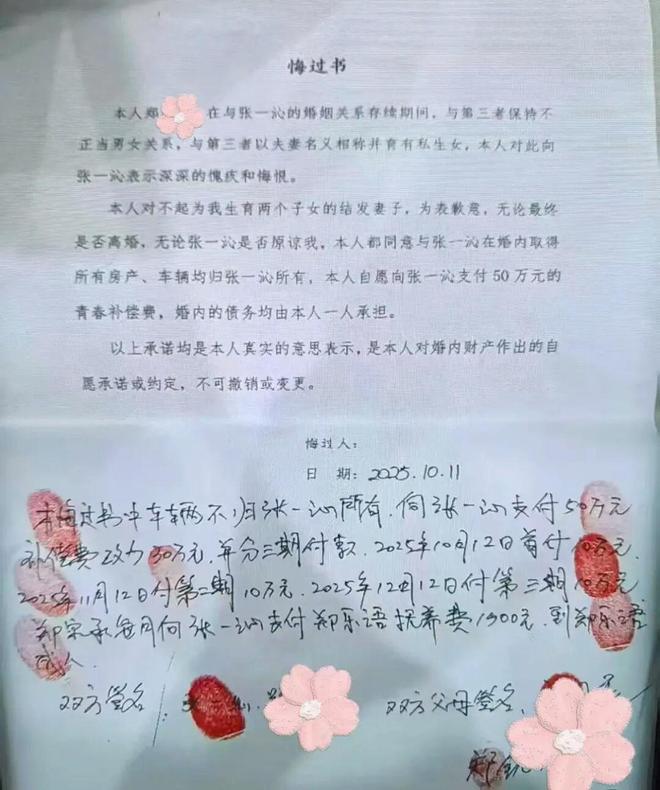 悔过书
本人郑 在与张一沁的婚姻关系存续期间，与第三者保持不
正当男女关系，与第三者以夫妻名义相称并育有私生女，本人对此向
张一沁表示深深的愧疚和悔恨。
本人对不起为我生育两个子女的结发妻子，为表歉意，无论最终
是否离婚，无论张一沁是否原谅我，本人都同意与张一沁在婚内取得
所有房产、车辆均归张一沁所有，本人自愿向张一沁支付50万元的
青春补偿费，婚内的债务均由本人一人承担。
以上承诺均是本人真实的意思表示，是本人对婚内财产作出的自
愿承诺或约定，不可撤销或变更。
悔过人：
日 期：2025.10.11
本悔过书中车辆不归张一沁所有.向张一沁支付50万元
补偿费改为30万元.并分三期付款.2025年10月12日首付10万元.
2025年11月12日付第二期10万元.2025年12月12日付第三期10万元
郑宗承每月向张一沁支付郑乐语抚养费1900元.到郑乐语
成人.
双方签名： 双方父母签名.
郑